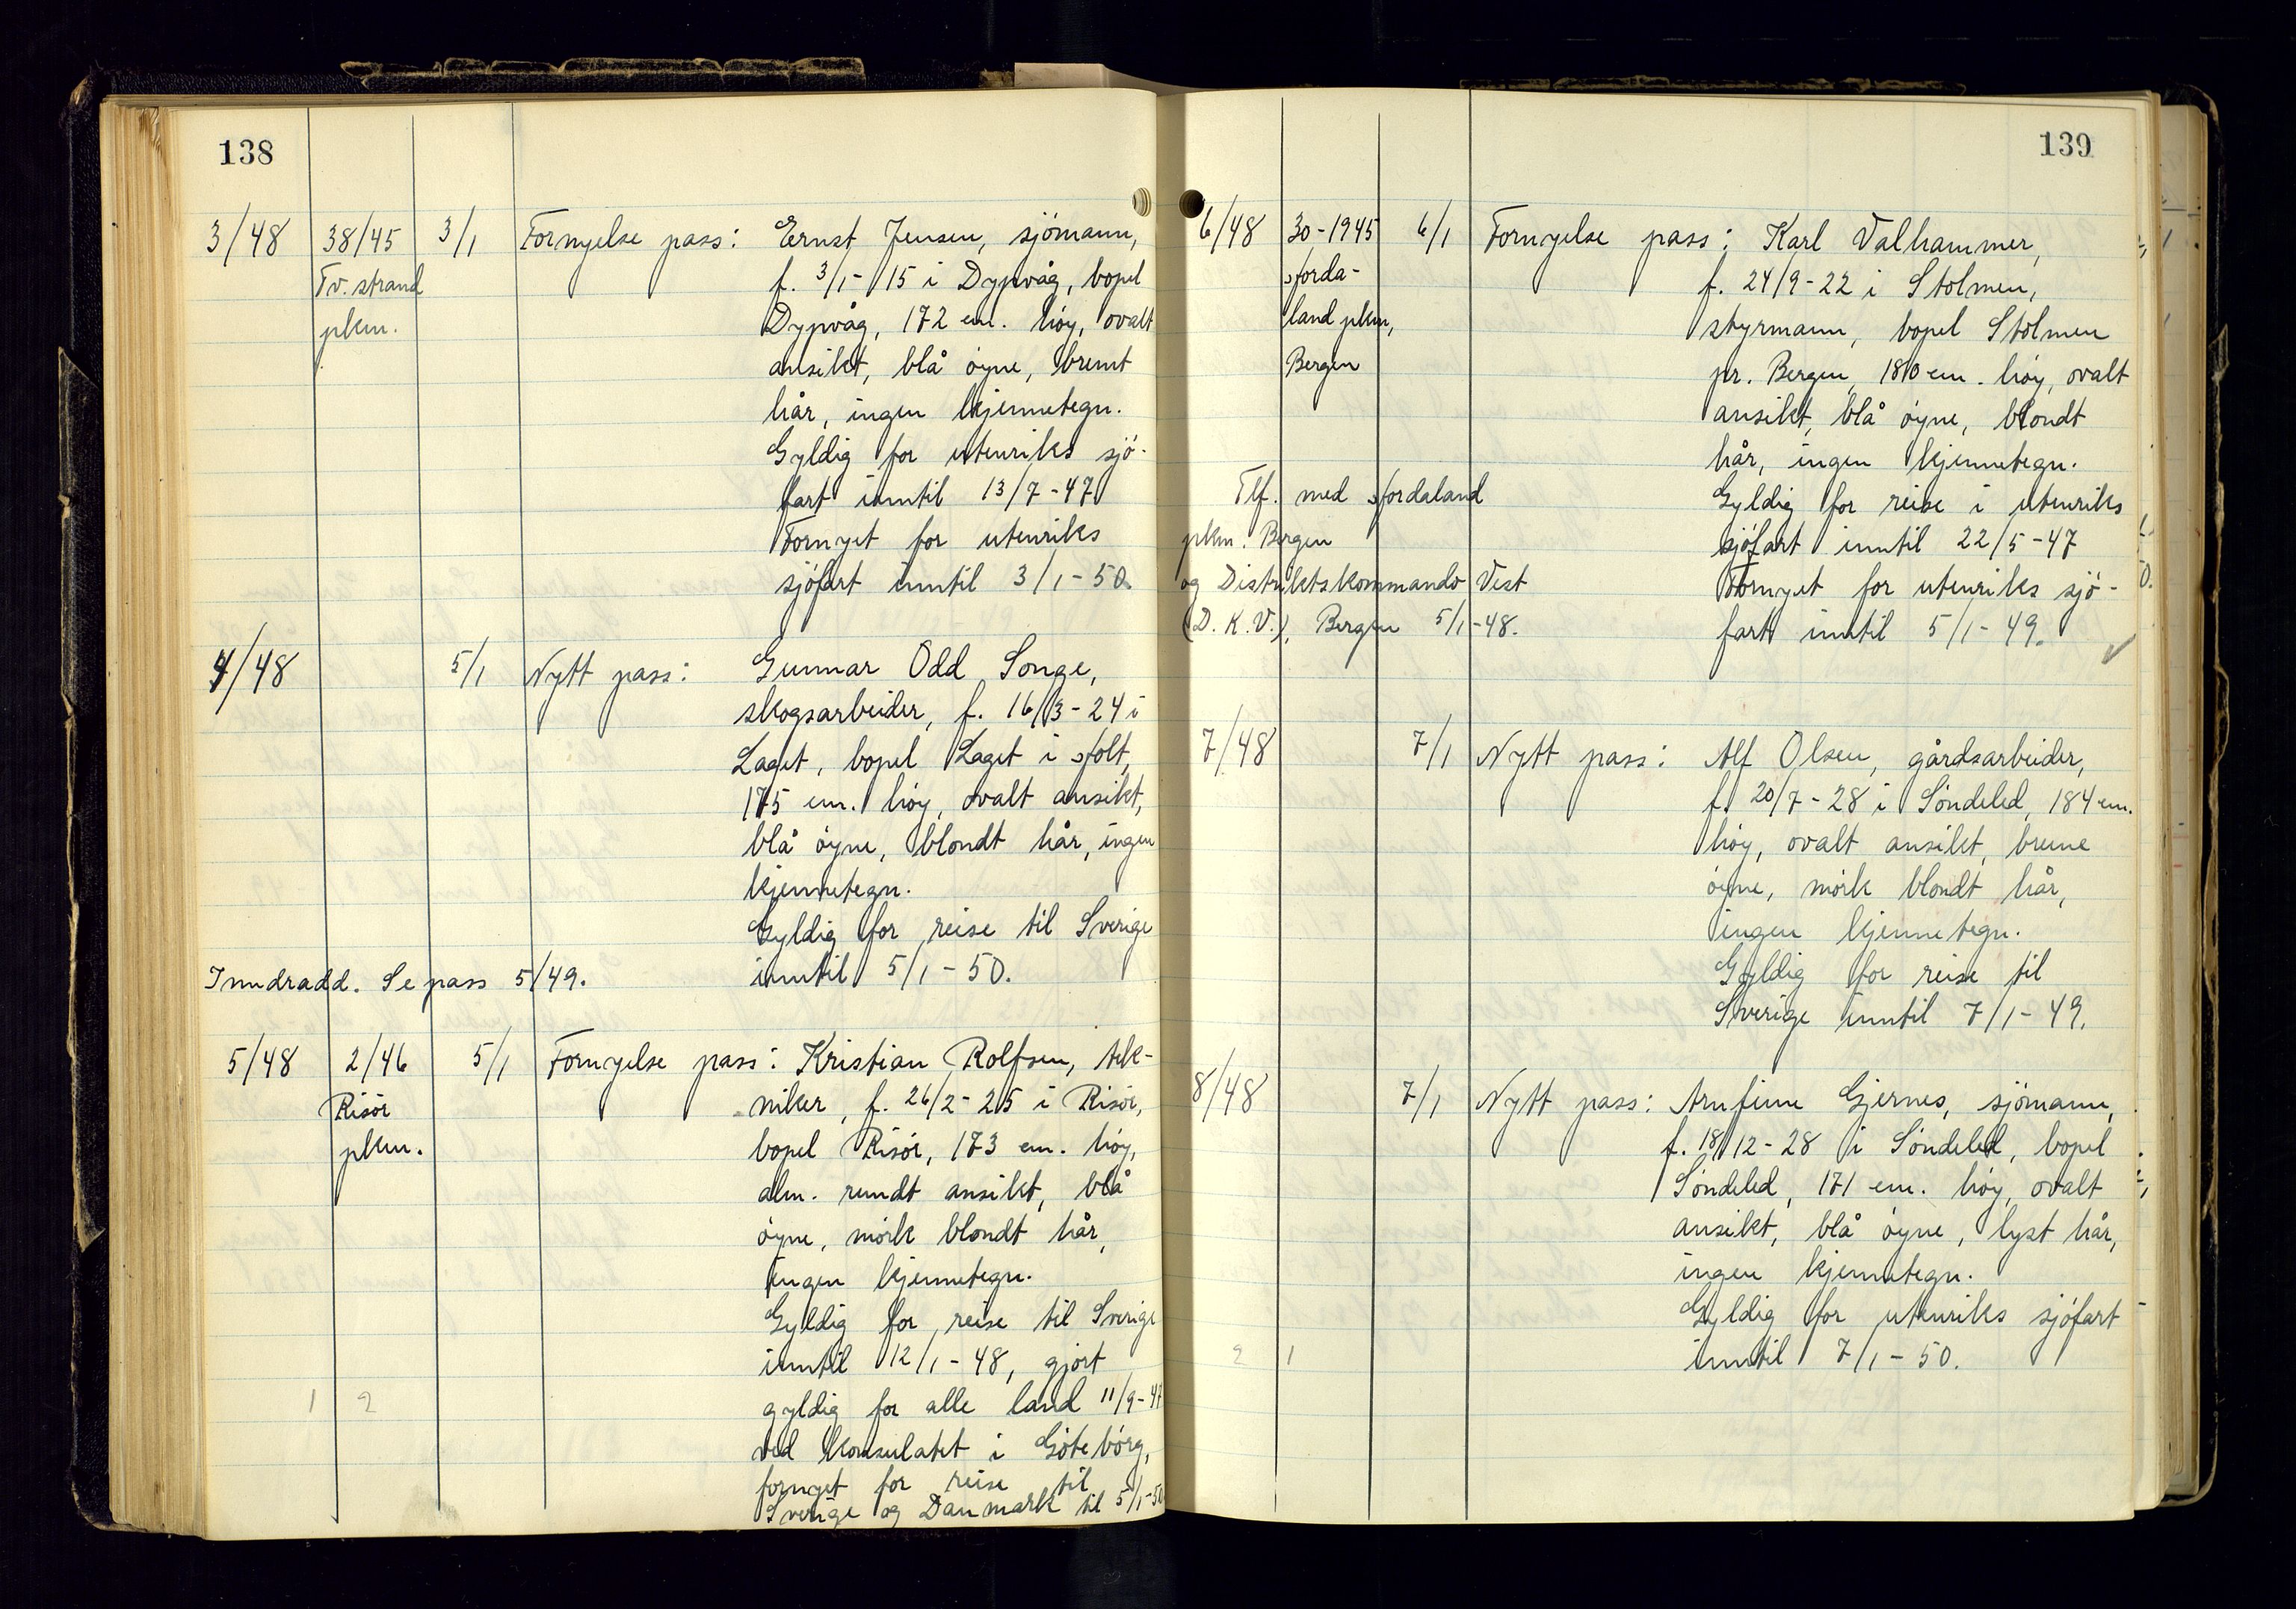 138
3/48 38/45 3/1 Fornyelse pass: Ernst Jensen, sjömann,
Tv.strand f. 3/1-15 i Dypvåg, bopel
pkm. Dypvåg, 172 cm. höy, ovalt
ansikt, blå öyne, brunt
hår, ingen kjennetegn.
Gyldig for utenriks sjö-
fart inntil 13/7-47
Fornyet for utenriks
sjöfart inntil 3/1-50.
4/48 5/1 Nytt pass: Gunnar Odd Songe,
skogsarbeider, f. 16/3-24 i
Laget, bopel Laget i Holt,
175 cm. höy, ovalt ansikt,
blå öyne, blondt hår, ingen
kjennetegn.
Gyldig for reise til Sverige
inntil 5/1-50.
Inndradd. Se pass 5/49.
5/48 2/46 5/1 Fornyelse pass: Kristian Rolfsen, tek-
Risör niker, f. 26/2-25 i Risör,
pkm. bopel Risör, 173 cm. höy,
alm. rundt ansikt, blå
öyne, mörk blondt hår,
ingen kjennetegn.
Gyldig for reise til Sverige
inntil 12/1-48, gjort
gyldig for alle land 11/9-47
ved konsulatet i Göteborg,
fornyet for reise til
Sverige og Danmark til 5/1-50
1 2
139
6/48 30-1945 6/1 Fornyelse pass: Karl Valhammer,
Horda- f. 24/9-22 i Stolmen,
land pkm, styrmann, bopel Stolmen
Bergen pr. Bergen, 180 cm. höy, ovalt
ansikt, blå öyne, blondt
hår, ingen kjennetegn.
Gyldig for reise i utenriks
sjöfart inntil 22/5-47
Fornyet for utenriks sjö-
fart inntil 5/1-49.
Tlf. med Hordaland
pkm. Bergen
og Distriktskommando Vest
(D.K.V.), Bergen 5/1-48.
7/48 7/1 Nytt pass: Alf Olsen, gårdsarbeider,
f. 20/7-28 i Söndeled, 184 cm.
höy, ovalt ansikt, brune
öyne, mörk blondt hår,
ingen kjennetegn.
Gyldig for reise til
Sverige inntil 7/1-49.
8/48 7/1 Nytt pass: Arnfinn Gjernes, sjömann,
f. 18/12-28 i Söndeled, bopel
Söndeled, 171 cm. höy, ovalt
ansikt, blå öyne, lyst hår,
ingen kjennetegn.
Gyldig for utenriks sjöfart
inntil 7/1-50.
2 1